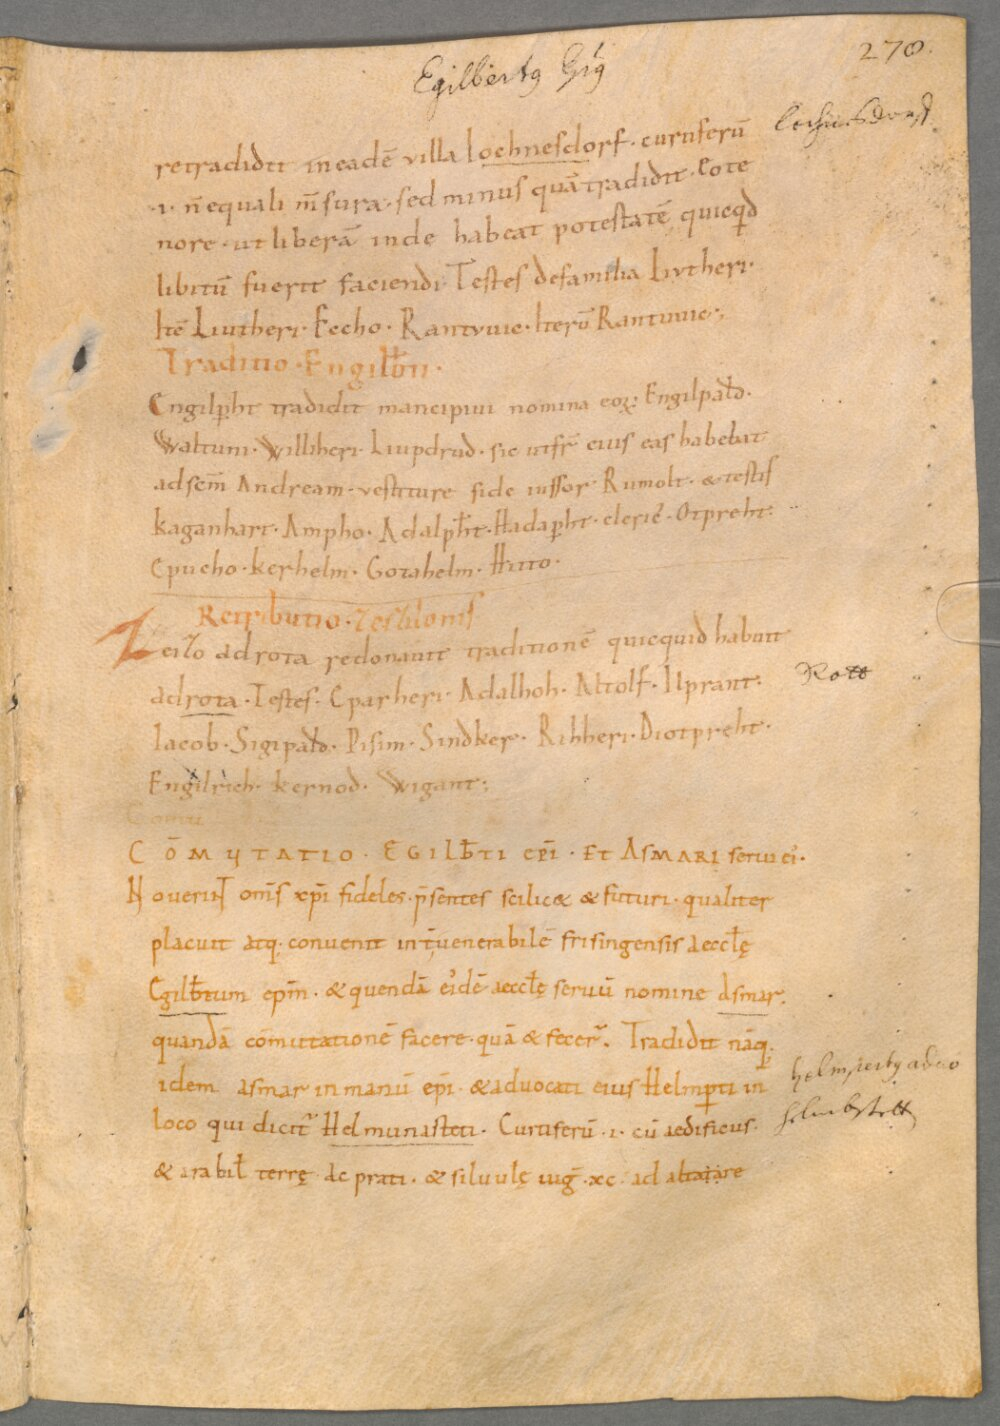 270.
Egilbertꝯ Epꝯ
retradidit in eadē villa lochnesdorf · curtiferū
·i· n̄ equali m̄sura · sed minus quā tradidit · Eo te
nore · ut liberā inde habeat potestatē quicq̇d
libitū fuerit faciendi · Testes de familia Liutheri ·
Itē Liutheri · Eccho · Rantvvic · Iterū Rantuuic ·;
Traditio · Engilb̄ti ·
Engilp̱ht tradidit mancipiui nomina eoꝝ · Engilpald̄ ·
Waltuni · Williheri · Liupdrud · sic ut fr̄ eius eas habebat
ad sc̄m Andream · vestiture fide iussor Rumolt · & testis
kaganhart · Ampho · Adalp̄ht · Hadap̱ht · cleric̄ · Otpreht ·
Epucho · kerhelm · Gotahelm · Hitto ·
Retributio · Zeizilonis
Zeizlo ad rota redonavit traditionē quicquid habuit
Rott
ad rota · Testes · Eparheri · Adalhoh · Altolf · Ilprant ·
Iacob · Sigipald̄ · Pisim · Sindker · Rihheri · Diotpreht ·
Engilrich · kernod · Wigant ·;
CŌMVTATIO · EGILB̄TI EP̄I · ET ASMARI serui ei᾿ ·
NoveriNT om̄s xp̄i fideles · p̄sentes scilic& & futuri · qualiter
placuit atq; convenit int̄ venerabilē frisingensis aeccl̄ę
Egilb̄tum ep̄m · & quendā ei᾿dē aeccl̄ę seruū nomine Asmar ·
quandā cōmutationē facere · quā & fecer̄ · Tradidit nāq;
idem asmar in manū ep̄i · & advocati eius Helmp̱ti in
helmpertꝯ advo
loco qui dicit᷑ Helmunasteti · Curtiferū · i · cū aedificiis ·
helmbstett
& arabil̄ terrę ac prati · & siluulę iug̅ · xc · ad